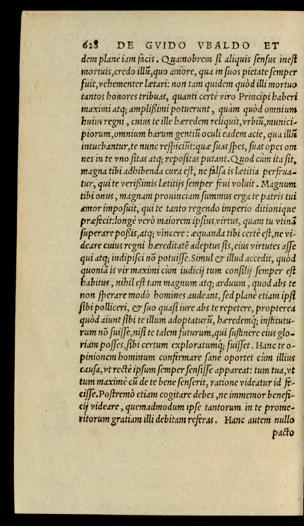 628 DE GVIDO VBALDO ET
dem plane iam facis. Quamobrem si aliquis sensus inest
mortuis, credo illũ, quo amore, qua in suos pietate semper
fuit, vehementer lætari: non tam quidem quòd illi mortuo
tantos honores tribuas, quanti certè viro Principi haberi
maximi atq; amplißimi potuerunt, quàm quòd omnium
huius regni, cuius te ille hæredem reliquit, vrbiũ, munici-
piorum, omnium harum gentiũ oculi eadem acie, qua illũ
intuebantur, te nunc respiciũt: quæ suas spes, suas opes om
nes in te vno sitas atq; repositas putant. Quod cùm ita sit,
magna tibi adhibenda cura est, ne falsa is Lætitia perfrua-
tur, qui te verißimis lætitijs semper frui voluit. Magnum
tibi onus, magnam prouinciam summus erga te patris tui
amor imposuit, qui te tanto regendo imperio ditionique
præfecit: longè verò maiorem ipsius virtus, quam tu vtinã
superare poßis, atq; vincere: æquanda tibi certè est, ne vi-
deare cuius regni hæreditatẽ adeptus sis, eius virtutes asse
qui atq; indipisci nõ potuisse. Simul & illud accedit, quòd
quoniã is vir maximi cùm iudicij tum consilij semper est
habitus, nihil est tam magnum atq; arduum, quod abs te
non sperare modò homines audeant, sed plane etiam ipsi
sibi polliceri, & suo quasi iure abs te repetere, propterea
quòd aiunt sibi te illum adoptaturũ, hæredemq; institutu-
rum nõ fuisse, nisi te talem futurum, qui sustinere eius glo-
riam posses, sibi certum exploratumq; fuisset. Hanc te o-
pinionem hominum confirmare sane oportet cùm illius
causa, vt rectè ipsum semper sensisse appareat: tum tua, vt
tum maxime cũ de te bene senserit, ratione videatur id fe-
cisse. Postremò etiam cogitare debes, ne immemor benefi-
cij videare, quemadmodum ipse tantorum in te prome-
ritorum gratiam illi debitam referas. Hanc autem nullo
pacto